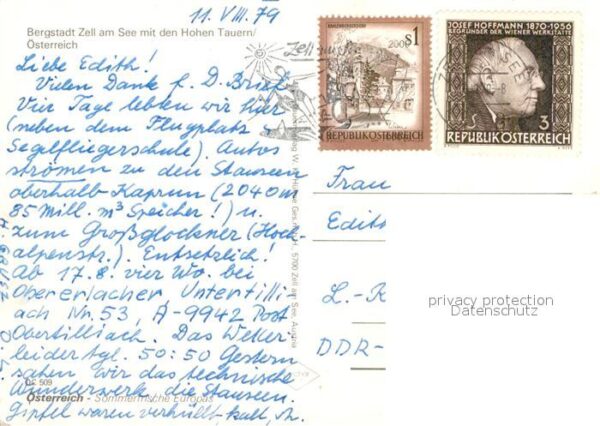 11. VIII. 79
Bergstadt Zell am See mit den Hohen Tauern/
Österreich
Liebe Edith!
Vielen Dank f. D. Brief.
Vier Tage leben wir hier
(neben dem Flugplatz u.
Segelfliegerschule). Autos
strömen zu den Stauseen
oberhalb Kaprun (2040 m
85 Mill. m³ Speicher!) u.
zum Großglockner (Hoch-
alpenstr.). Entsetzlich!
Ab 17.8. vier Wo. bei
Obererlacher, Untertilli-
ach Nr. 53, A-9942 Post
Obertilliach. Das Wetter
leider tgl. 50:50 Gestern
sahen wir das technische
Wunderwerk, die Stauseen.
Gipfel waren verhüllt, kalt,
509
Österreich - Sommerfrische Europas
5700 Zell am See, Austria
S1
REPUBLIK ÖSTERREICH
JOSEF HOFFMANN 1870-1956
BEGRÜNDER DER WIENER WERKSTÄTTE
S 3
REPUBLIK ÖSTERREICH
Frau
Edith
L.-K
DDR-
privacy protection
Datenschutz